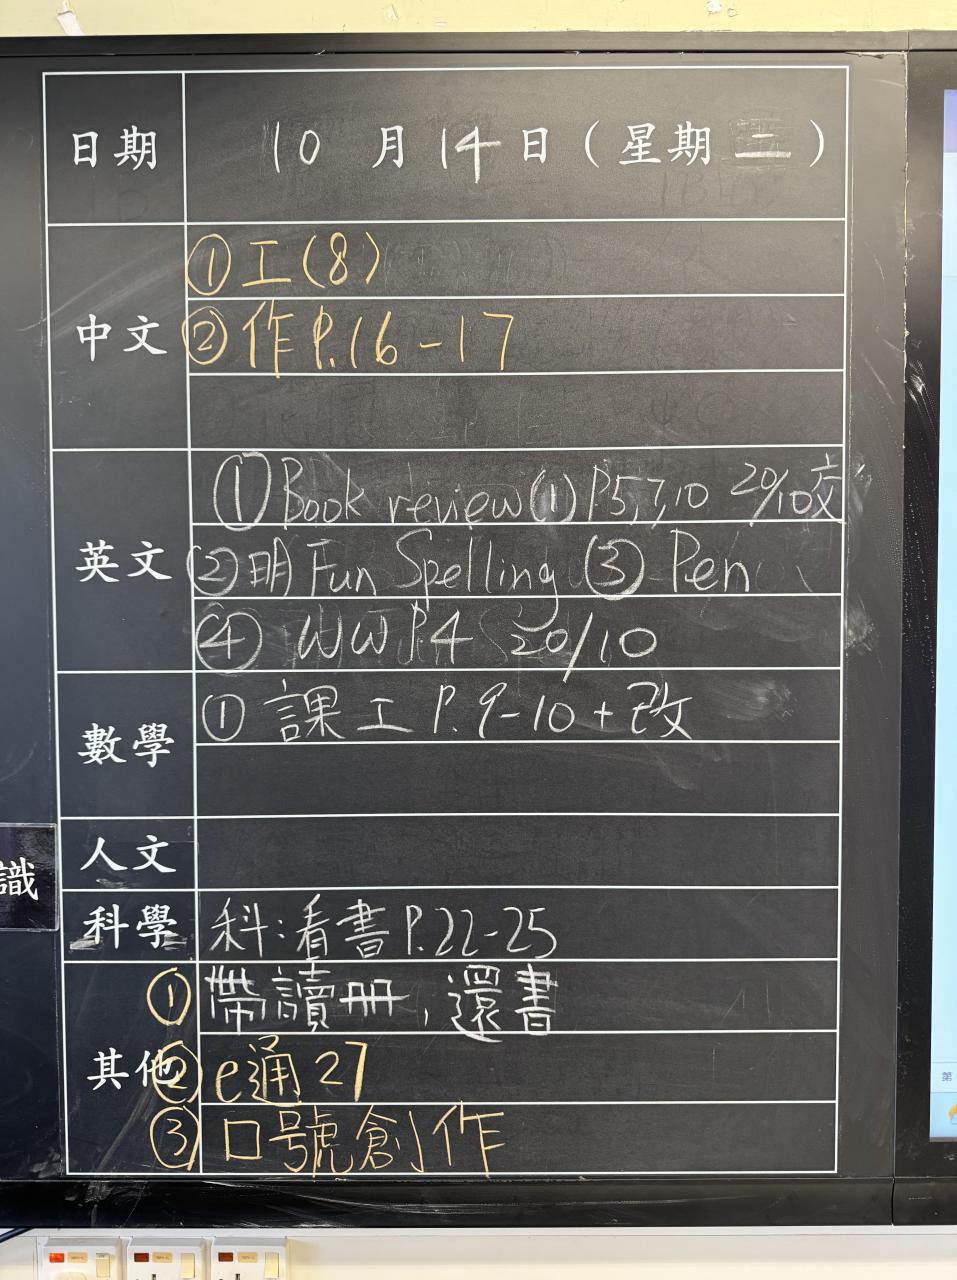 日期 10 月 14 日 (星期 二)
中文
①工(8)
②作P.16-17
英文
①Book review(1) P.5,7,10 20/10交
②明 Fun Spelling ③ Pen
④ WW P.4 20/10
數學
① 課工 P.9-10+改
人文
科學 科:看書P.22-25
其他
①帶讀冊,還書
②e通27
③口號創作
識
第